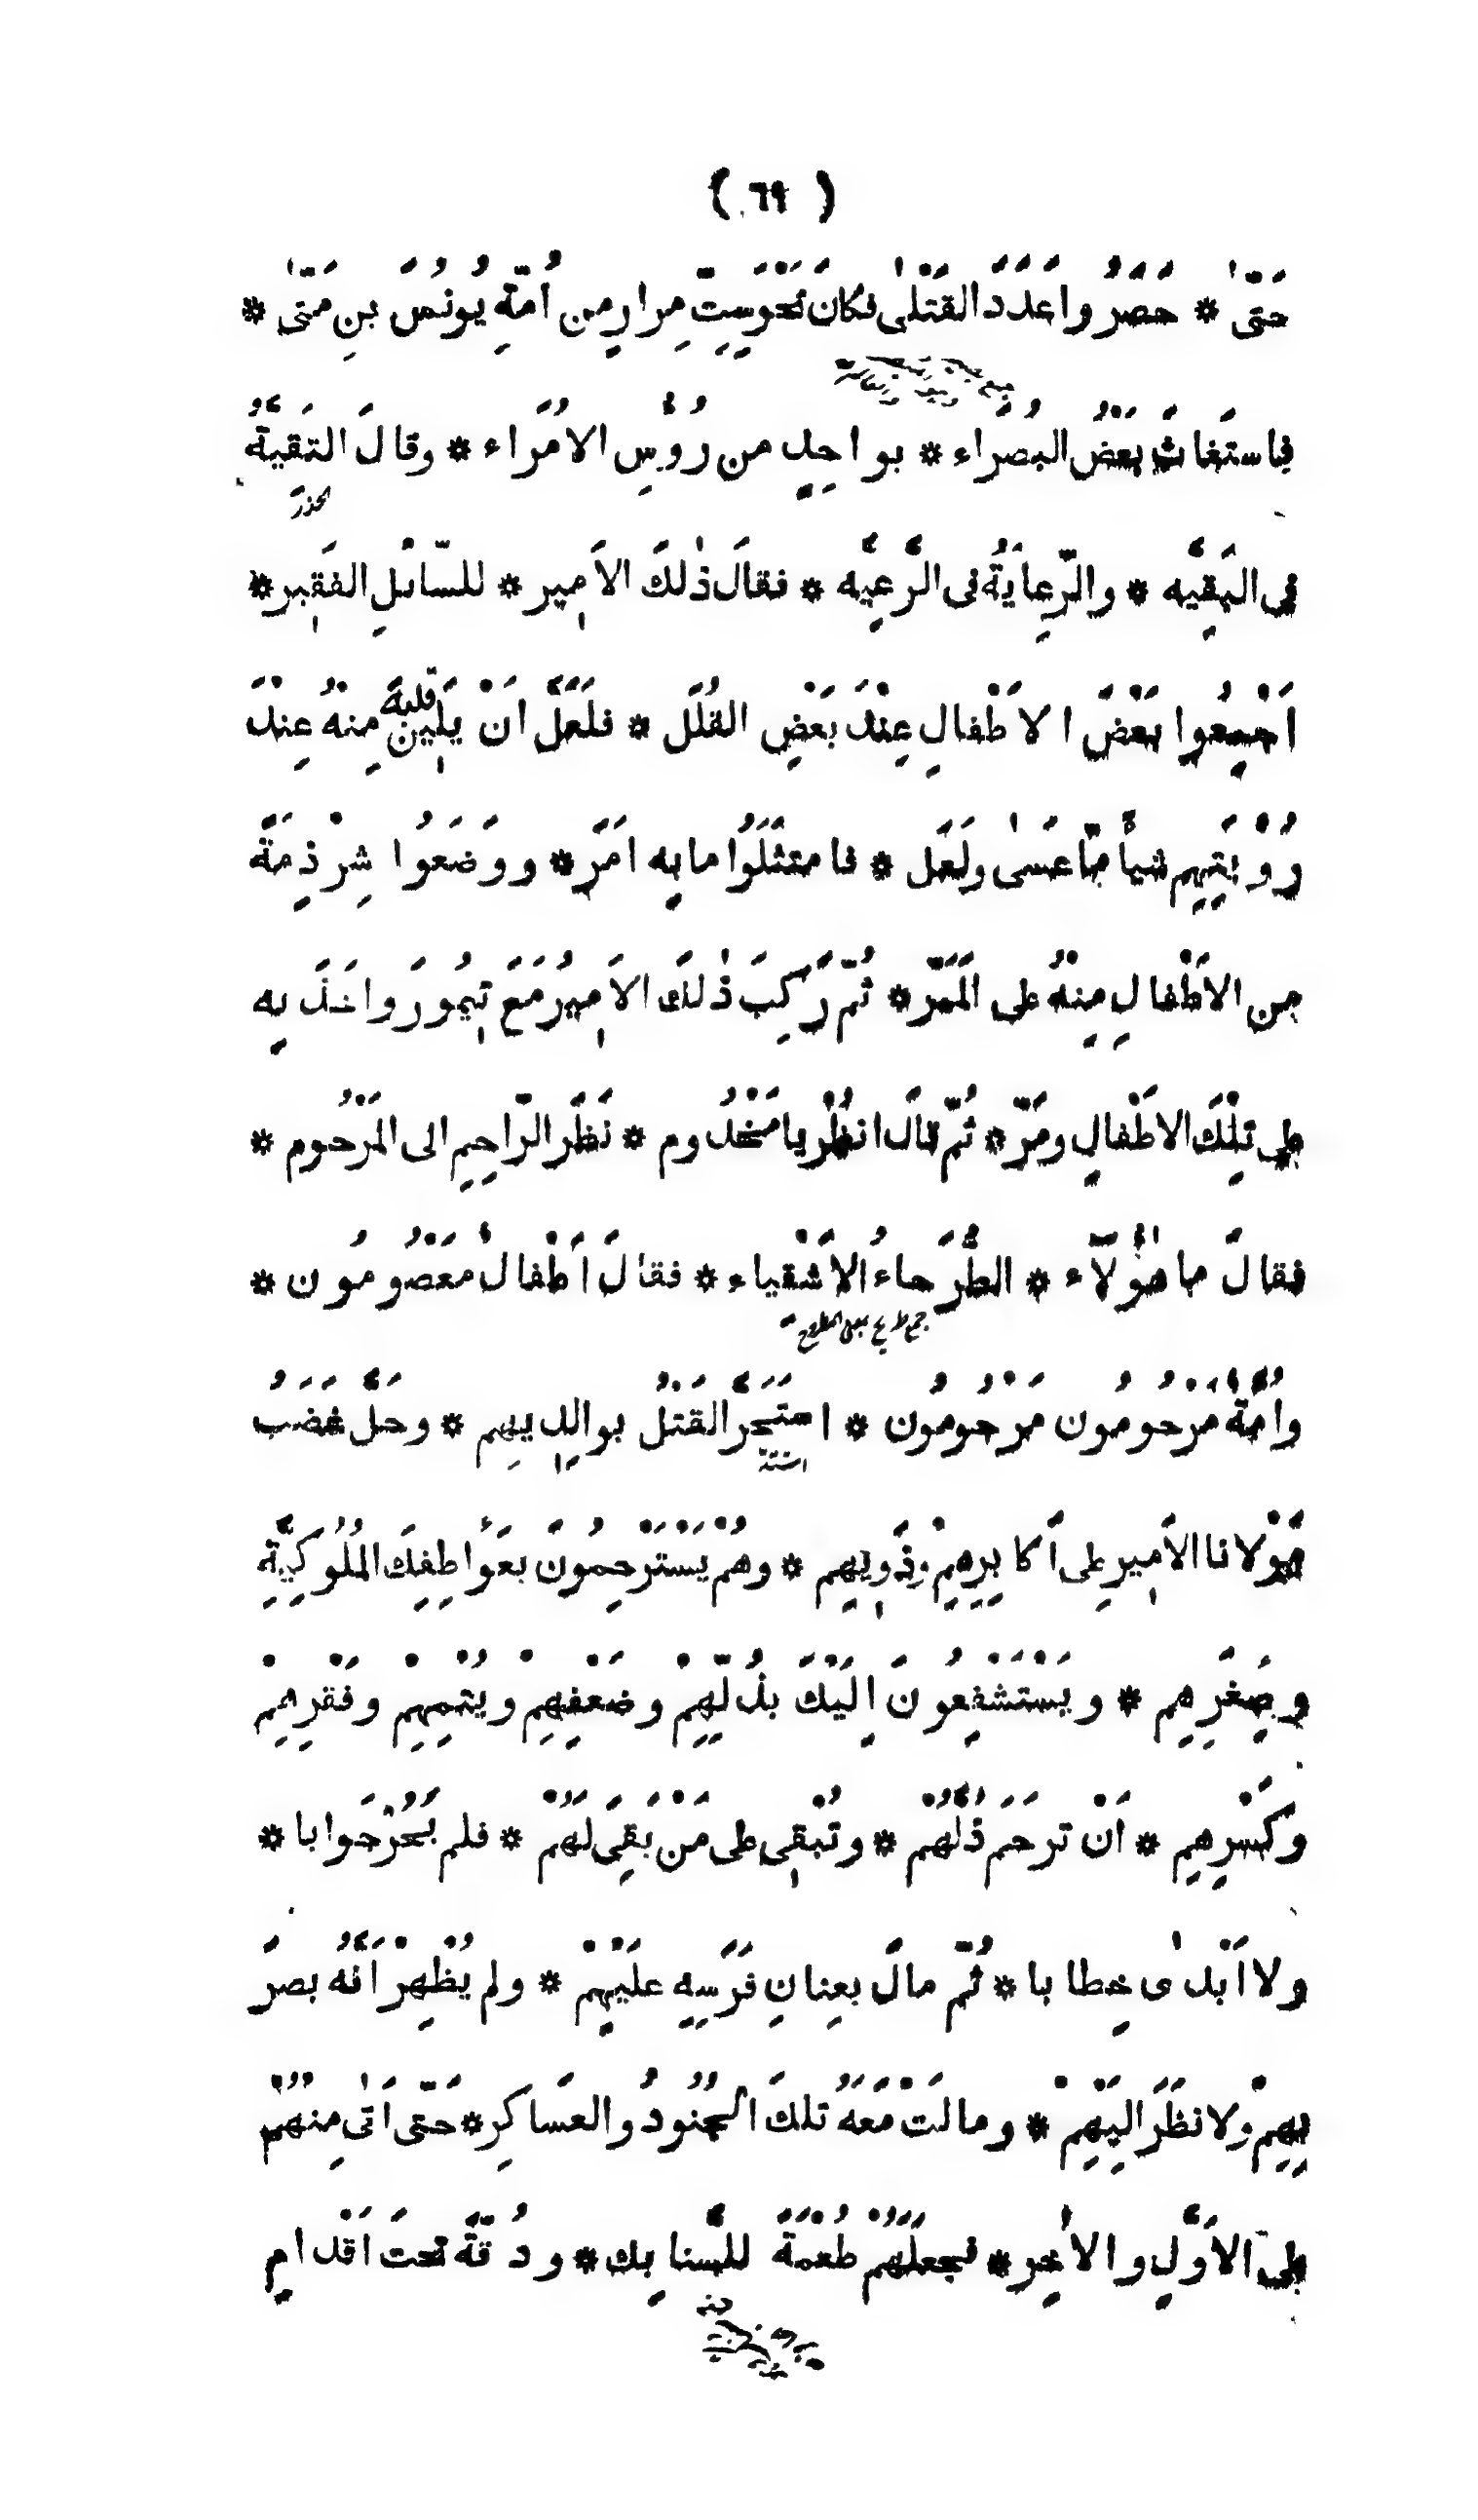 ( ٦٩ )
حَتّٰى * حَصَرُوا عَدَدَ القَتْلٰى فكَانَ نَحْوَ سِتِّ مِرارٍ من أُمّةِ يُونُسَ بنِ مَتّٰى *
فاستَغاثَ بَعْضُ البُصَرَاء * بواحِدٍ من رُؤُسِ الاُمَراء * وقالَ التَقيَّةُ
فى البَقِيَّه * والرِّعايَةُ فى الرَّعِيَّه * فقالَ ذٰلكَ الاَمِير * للسّائلِ الفقِير *
اَجْمِعُوا بَعْضَ الاَطْفالِ عِنْدَ بَعْضِ القُلَل * فلَعَلَّ اَنْ يَلِينَ قلبهُ مِنهُ عِنْدَ
رُؤْيَتِهِم شيأً مّا عَسٰى ولَعَل * فامتثَلُوا ما بِه اَمَر * ووَضَعُوا شِرْذِمَةً
مِن الاَطْفالِ مِنهُ على المَمَرّ * ثُمّ رَكِبَ ذٰلكَ الاَمِيرُ مَعَ تِيمُورَ واخَذَ بِه
على تِلْكَ الاَطْفالِ ومَرّ * ثُمّ قالَ انظُرْ يا مَخْدُوم * نَظَرَ الرّاحِمِ الى المَرْحُوم *
فقالَ ما هٰؤُلآء * الطُّرَحاءُ الاَشْقياء * فقالَ اَطْفالٌ معْصُومُون *
واُمَّةٌ مَرْحُومُون مَرْحُومُون * استَحَرَّ القَتْلُ بوالِدِيهِم * وحَلَّ غضَبُ
مَوْلانا الاَمِيرِ على اَكابِرِهِمْ وذَوِيهِم * وهُمْ يَسْتَرْحِمُونَ بعَواطِفِكَ المُلُوكِيَّةِ
وصِغَرِهِم * ويَسْتشْفِعُونَ اِلَيْكَ بذُلِّهِمْ وضَعْفِهِمْ ويُتْمِهِمْ وفَقْرِهِمْ
وكَسْرِهِم * اَنْ ترحَمَ ذُلَّهُمْ * وتُبْقِى على مَنْ بَقِىَ لَهُمْ * فلم يُحِرْ جَوابا *
ولا اَبْدٰى خِطابا * ثُمّ مالَ بعِنانِ فَرَسِهِ علَيْهِمْ * ولم يُظْهِرْ اَنّهُ بصَرَ
بِهِمْ ولا نظَرَ الَيْهِمْ * ومالَتْ مَعَهُ تلكَ الجُنُودُ والعَساكِر * حَتّى اَتٰى مِنهُمْ
على الاَوّلِ والاٰخِر * فجعلَهُمْ طُعْمَةً للسَّنابِك * ودُقَّةً تحتَ اَقْدامِ